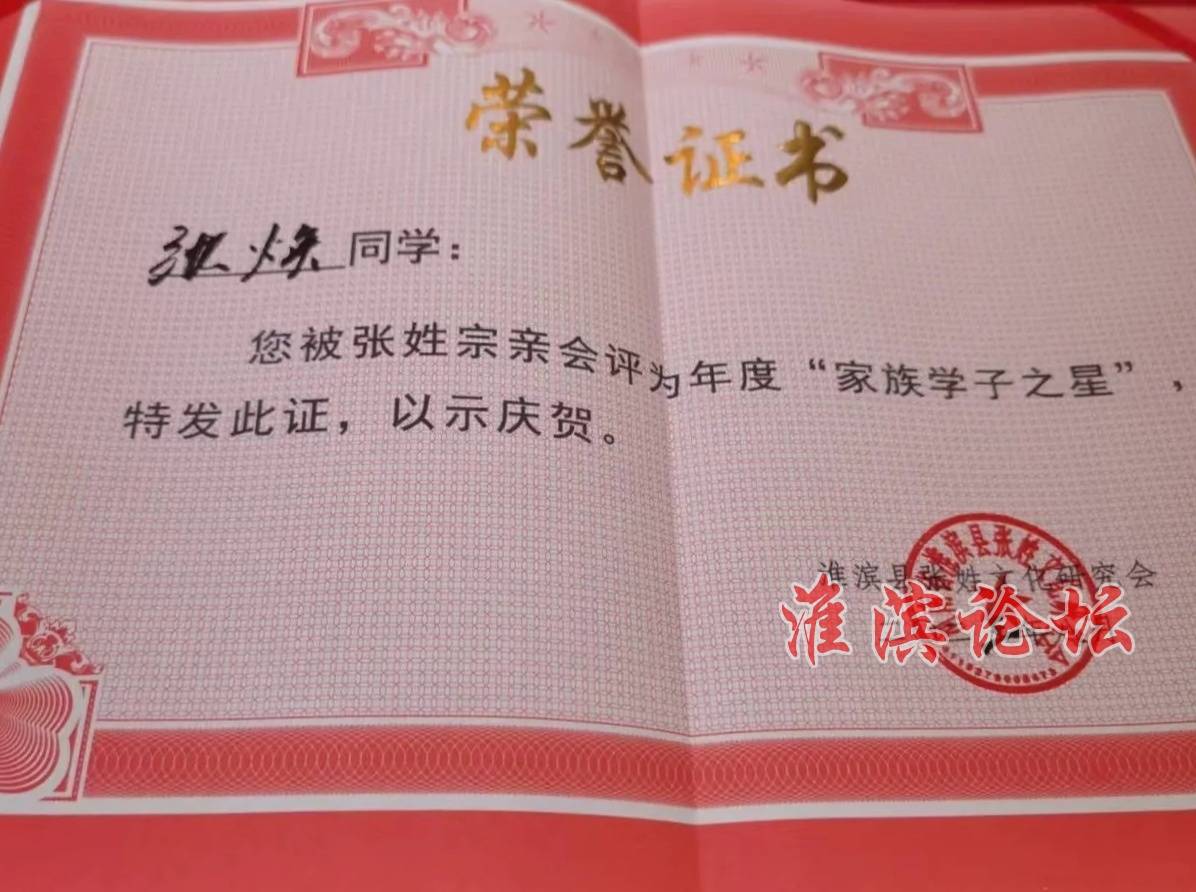 荣誉证书
张焕同学：
您被张姓宗亲会评为年度“家族学子之星”，
特发此证，以示庆贺。
淮滨县张姓文化研究会
淮滨论坛